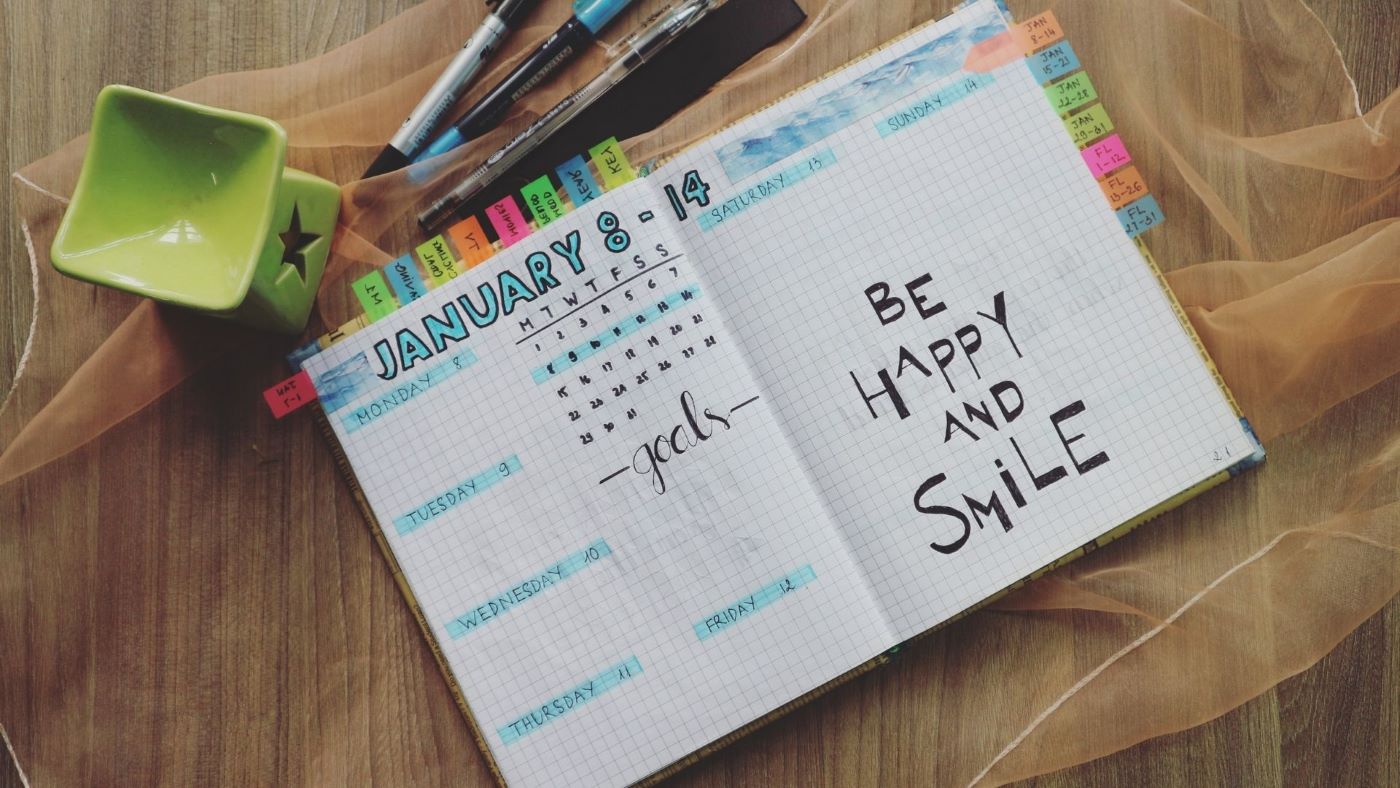 JANUARY 8 - 14
M T W T F S S
1 2 3 4 5 6 7
8 9 10 11 12 13 14
15 16 17 18 19 20 21
22 23 24 25 26 27 28
29 30 31
MONDAY 8
TUESDAY 9
WEDNESDAY 10
THURSDAY 11
-goals-
FRIDAY 12
SATURDAY 13
SUNDAY 14
BE
HAPPY
AND
SMiLE
21
KEY
YEAR
MOOD
PERIOD
MOVIES
TV
GOAL
JAN
8-14
JAN
15-21
JAN
22-28
JAN
29-31
FL
1-12
FL
13-26
FL
27-31